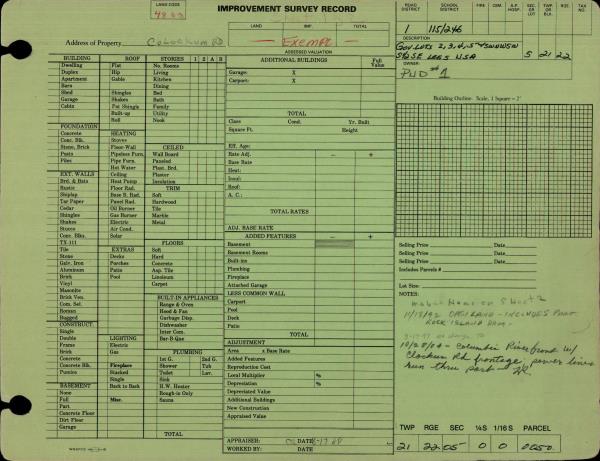 LAND CODE
IMPROVEMENT SURVEY RECORD
LAND IMP. TOTAL
Exempt
ASSESSED VALUATION
Address of Property Colockum RD
ROAD DISTRICT SCHOOL DISTRICT FIRE CEM. A.P. HOSP. SEC OR LOT TWP OR BLK RGE TAX NO.
1 115/246
Gov. Lots 2, 3, 4, 5
LESS USA
5 21 22
OWNER:
PUD #1
BUILDING
Dwelling
Duplex
Apartment
Barn
Shed
Garage
Cabin
ROOF
Flat
Hip
Gable
Shingles
Shakes
Pat Shingle
Built-up
Roll
STORIES 1 2 A B
No. Rooms
Living
Kitchen
Dining
Bed
Bath
Family
Utility
Nook
FOUNDATION
Concrete
Conc. Blk.
Stone, Brick
Posts
Piles
HEATING
Stoves
Floor-Wall
Pipeless Furn.
Pipe Furn.
Hot Water
Ceiling
Heat Pump
Floor Rad.
Base B. Rad.
Panel Rad.
Oil Burner
Gas Burner
Electric
Air Cond.
Solar
CEILED
Wall Board
Paneled
Plast. Brd.
Plaster
Insulation
TRIM
Soft
Hardwood
Tile
Marble
Metal
EXT. WALLS
Brd. & Bats
Rustic
Shiplap
Tar Paper
Cedar
Shingles
Shakes
Stucco
Conc. Blk.
TX-111
Tile
Stone
Galv. Iron
Aluminum
Brick
Vinyl
Masonite
Brick Ven.
Com. Sel.
Roman
Rugged
EXTRAS
Decks
Porches
Patio
Pool
FLOORS
Soft
Hard
Concrete
Asp. Tile
Linoleum
Carpet
BUILT-IN APPLIANCES
Range & Oven
Hood & Fan
Garbage Disp.
Dishwasher
Inter Com.
Bar-B-Que
CONSTRUCT.
Single
Double
Frame
Brick
Concrete
Concrete Blk.
Pumice
LIGHTING
Electric
Gas
Fireplace
Stacked
Single
Back to Back
PLUMBING
1st G. 2nd G.
Shower Tub
Toilet Lav.
Sink
H.W. Heater
Rough-in Only
Sauna
BASEMENT
None
Full
Part
Concrete Floor
Dirt Floor
Garage
Misc.
TOTAL
ADDITIONAL BUILDINGS Full Value
Garage: X
Carport: X
TOTAL
Class Cond. Yr. Built
Square Ft. Height
Eff. Age:
Rate Adj. - +
Base Rate
Heat:
Insul:
Roof:
A. C.:
TOTAL RATES
ADJ. BASE RATE
ADDED FEATURES - +
Basement
Basement Rooms
Built-ins
Plumbing
Fireplace
Attached Garage
LESS COMMON WALL
Carport
Pool
Deck
Patio
TOTAL
ADJUSTMENT
Area x Base Rate
Added Features
Reproduction Cost
Local Multiplier %
Depreciation %
Depreciated Value
Additional Buildings
New Construction
Appraised Value
APPRAISER: DATE
WORKED BY: DATE
Building Outline Scale, 1 Square = 2'
Selling Price Date
Selling Price Date
Selling Price Date
Includes Parcels #
Lot Size:
NOTES:
Mobile Home on Sheet 2
11/18/92 OPEN LAND - INCLUDES PART
ROCK ISLAND DAM -
10/28/04 - Columbia Riverfront w/
Clockum Rd frontage, power lines
run thru part
TWP RGE SEC ¼S 1/16 S PARCEL
21 22 05 0 0 0050